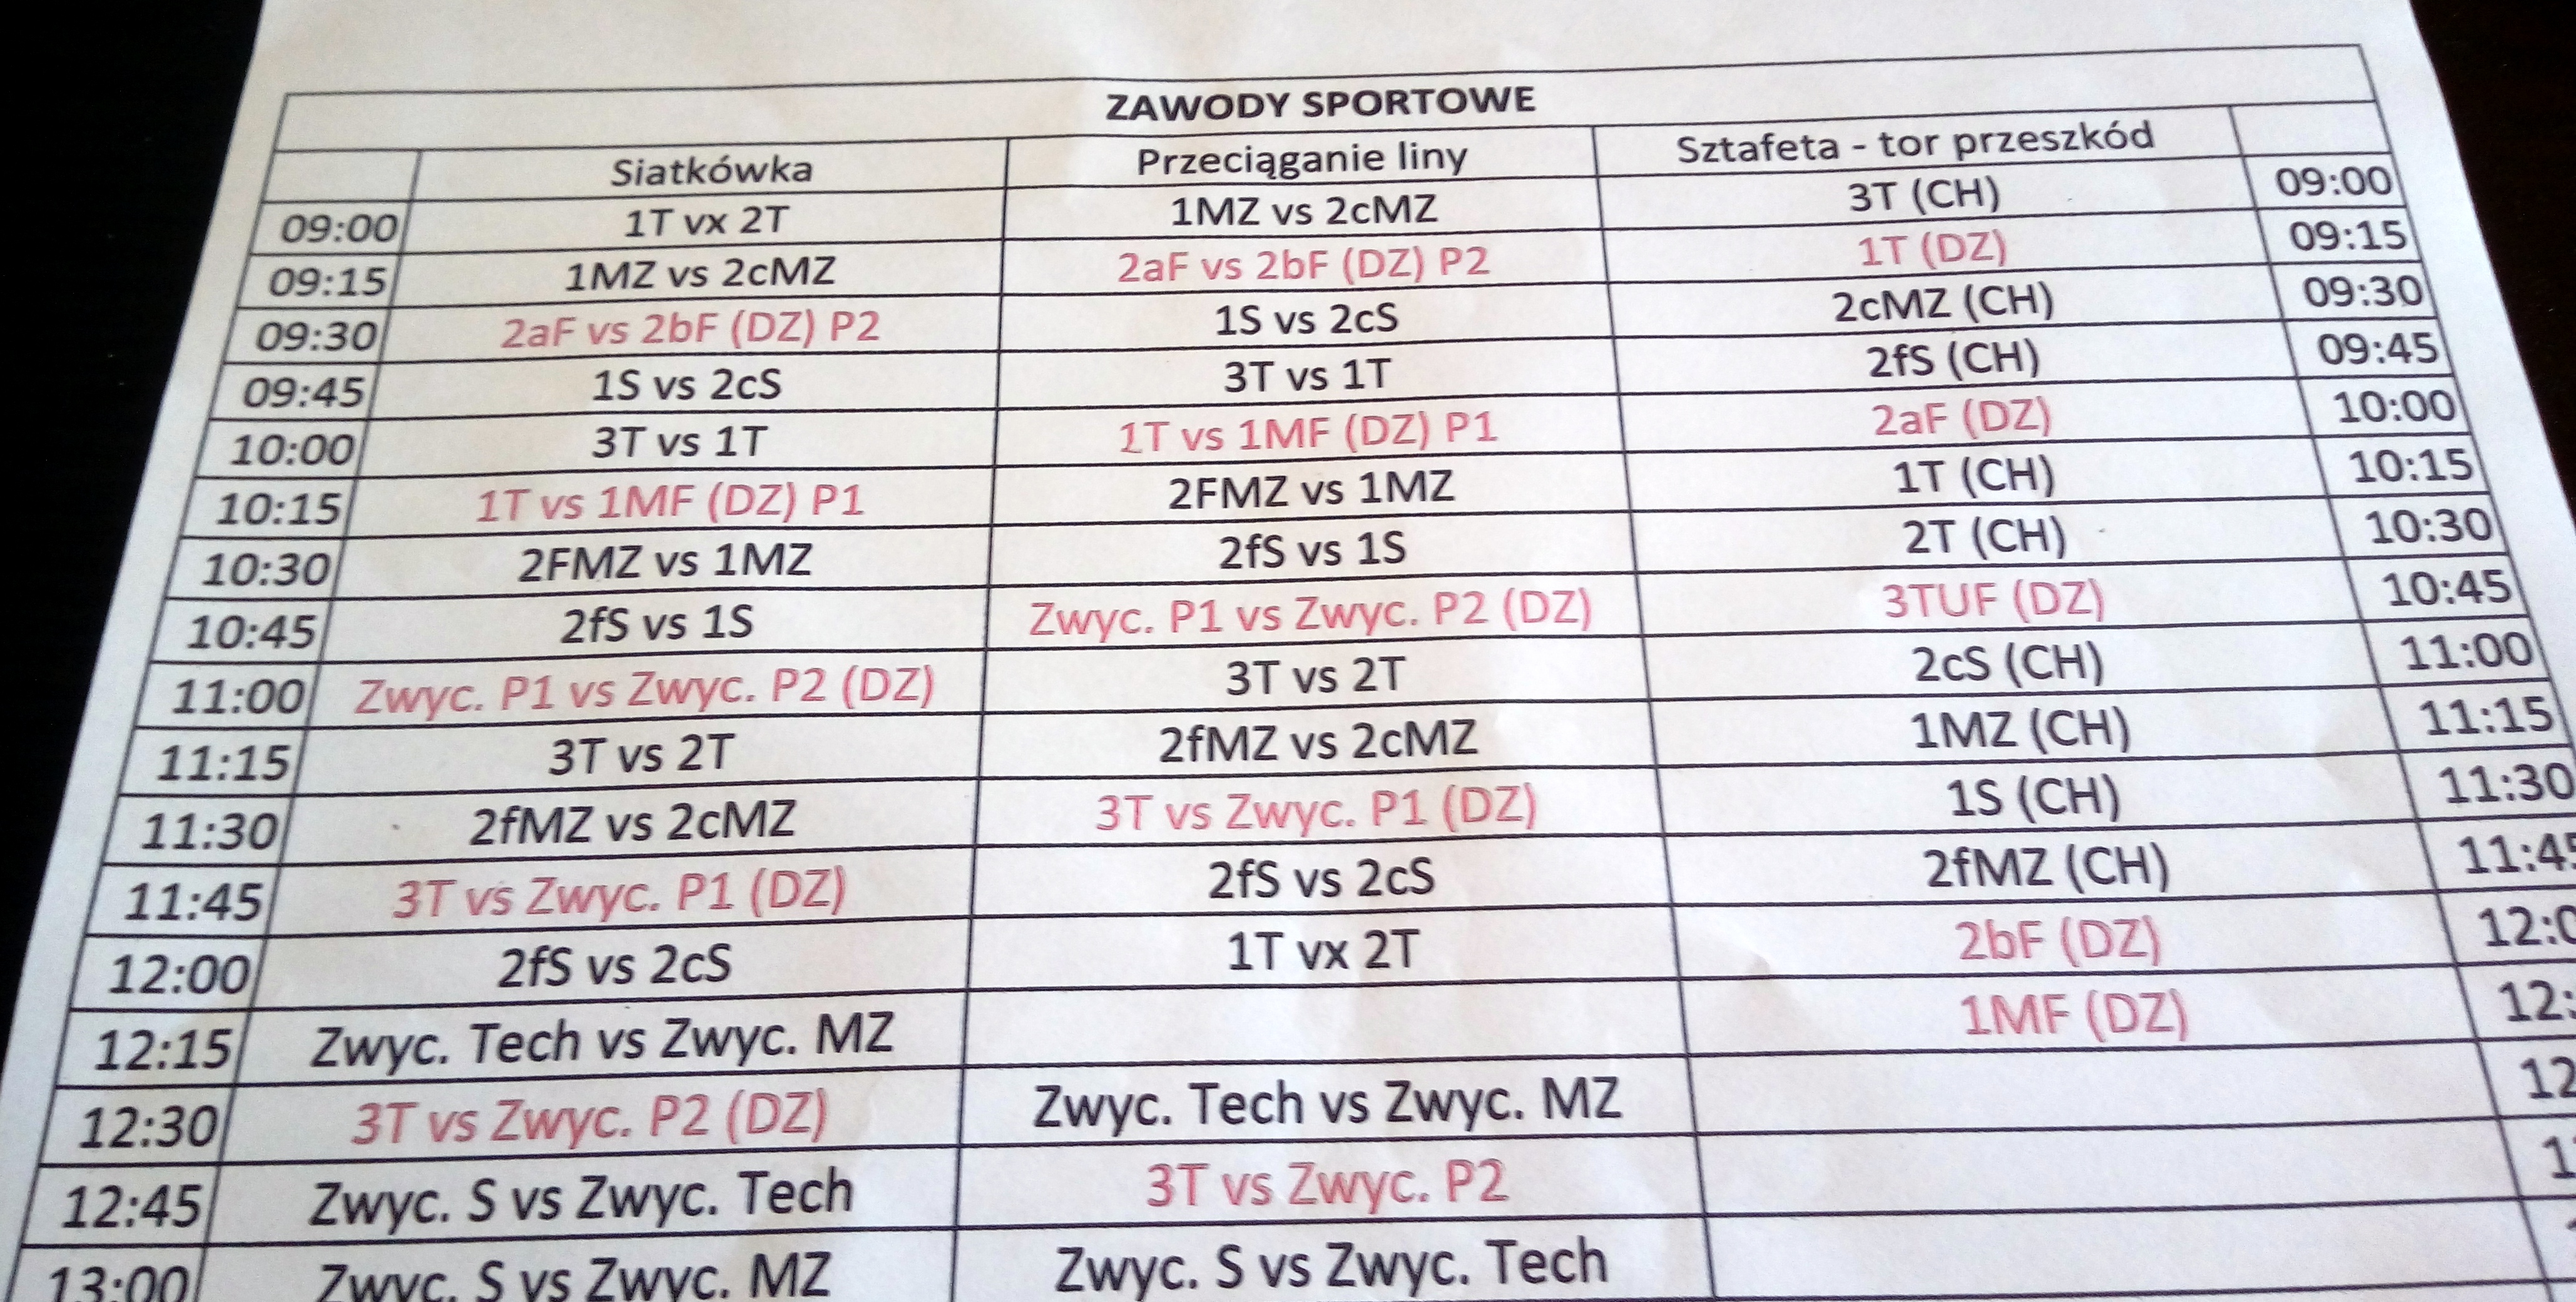 ZAWODY SPORTOWE
Siatkówka Przeciąganie liny Sztafeta - tor przeszkód
09:00 1T vx 2T 1MZ vs 2cMZ 3T (CH) 09:00
09:15 1MZ vs 2cMZ 2aF vs 2bF (DZ) P2 1T (DZ) 09:15
09:30 2aF vs 2bF (DZ) P2 1S vs 2cS 2cMZ (CH) 09:30
09:45 1S vs 2cS 3T vs 1T 2fS (CH) 09:45
10:00 3T vs 1T 1T vs 1MF (DZ) P1 2aF (DZ) 10:00
10:15 1T vs 1MF (DZ) P1 2FMZ vs 1MZ 1T (CH) 10:15
10:30 2FMZ vs 1MZ 2fS vs 1S 2T (CH) 10:30
10:45 2fS vs 1S Zwyc. P1 vs Zwyc. P2 (DZ) 3TUF (DZ) 10:45
11:00 Zwyc. P1 vs Zwyc. P2 (DZ) 3T vs 2T 2cS (CH) 11:00
11:15 3T vs 2T 2fMZ vs 2cMZ 1MZ (CH) 11:15
11:30 2fMZ vs 2cMZ 3T vs Zwyc. P1 (DZ) 1S (CH) 11:30
11:45 3T vs Zwyc. P1 (DZ) 2fS vs 2cS 2fMZ (CH)
12:00 2fS vs 2cS 1T vx 2T 2bF (DZ)
12:15 Zwyc. Tech vs Zwyc. MZ 1MF (DZ)
12:30 3T vs Zwyc. P2 (DZ) Zwyc. Tech vs Zwyc. MZ
12:45 Zwyc. S vs Zwyc. Tech 3T vs Zwyc. P2
13:00 Zwyc. S vs Zwyc. MZ Zwyc. S vs Zwyc. Tech